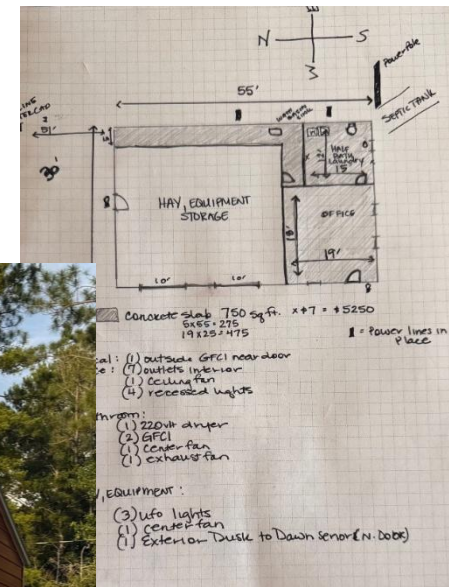 E
N S
3
Power Pole
55'
SEPTIC TANK
51'
30'
HALF
BATH
Laundry
15'
HAY, EQUIPMENT
STORAGE
OFFICE
18'
19'
10' 10'
Concrete slab 750 sq ft. x $7 = $5250
5x55 = 275
19 x 25 = 475
= Power lines in
Place
(1) outside GFCI near door
(7) outlets interior
(1) Ceiling fan
(4) recessed lights
(1) 220volt dryer
(2) GFCI
(1) Center fan
(1) exhaust fan
, EQUIPMENT:
(3) ufo lights
(1) center fan
(1) Exterior Dusk to Dawn Senor (N. Door)